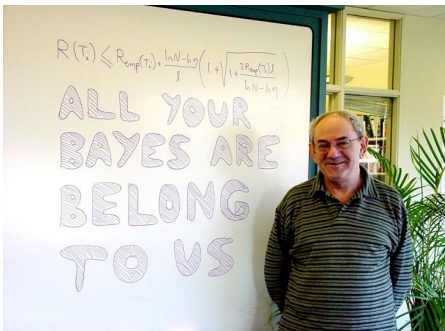 R(Tₖ) ≤ Remp(Tₖ) + (ln N - ln η)/l (1 + √(1 + 2Remp(Tₖ)l/(ln N - ln η)))
ALL YOUR
BAYES ARE
BELONG
TO US